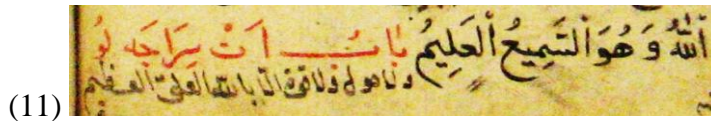 اَللّٰهُ وَ هُوَ اَلسَّمِيعُ اَلْعَلِيمُ بَابُ اَتْ يَرَاجَه لُو
ولاهول ولاقوة الا بالله العلي العظيم
(11)